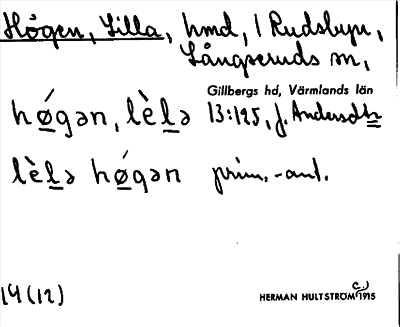 Högen, Lilla, hmd, i Rudsbyn,
Långseruds sn,
Gillbergs hd, Värmlands län
hǿgən, lèlə 13:125, J. Andersson
lèlə hǿgən prim.-ant.
14(12)
HERMAN HULTSTRÖM 1915